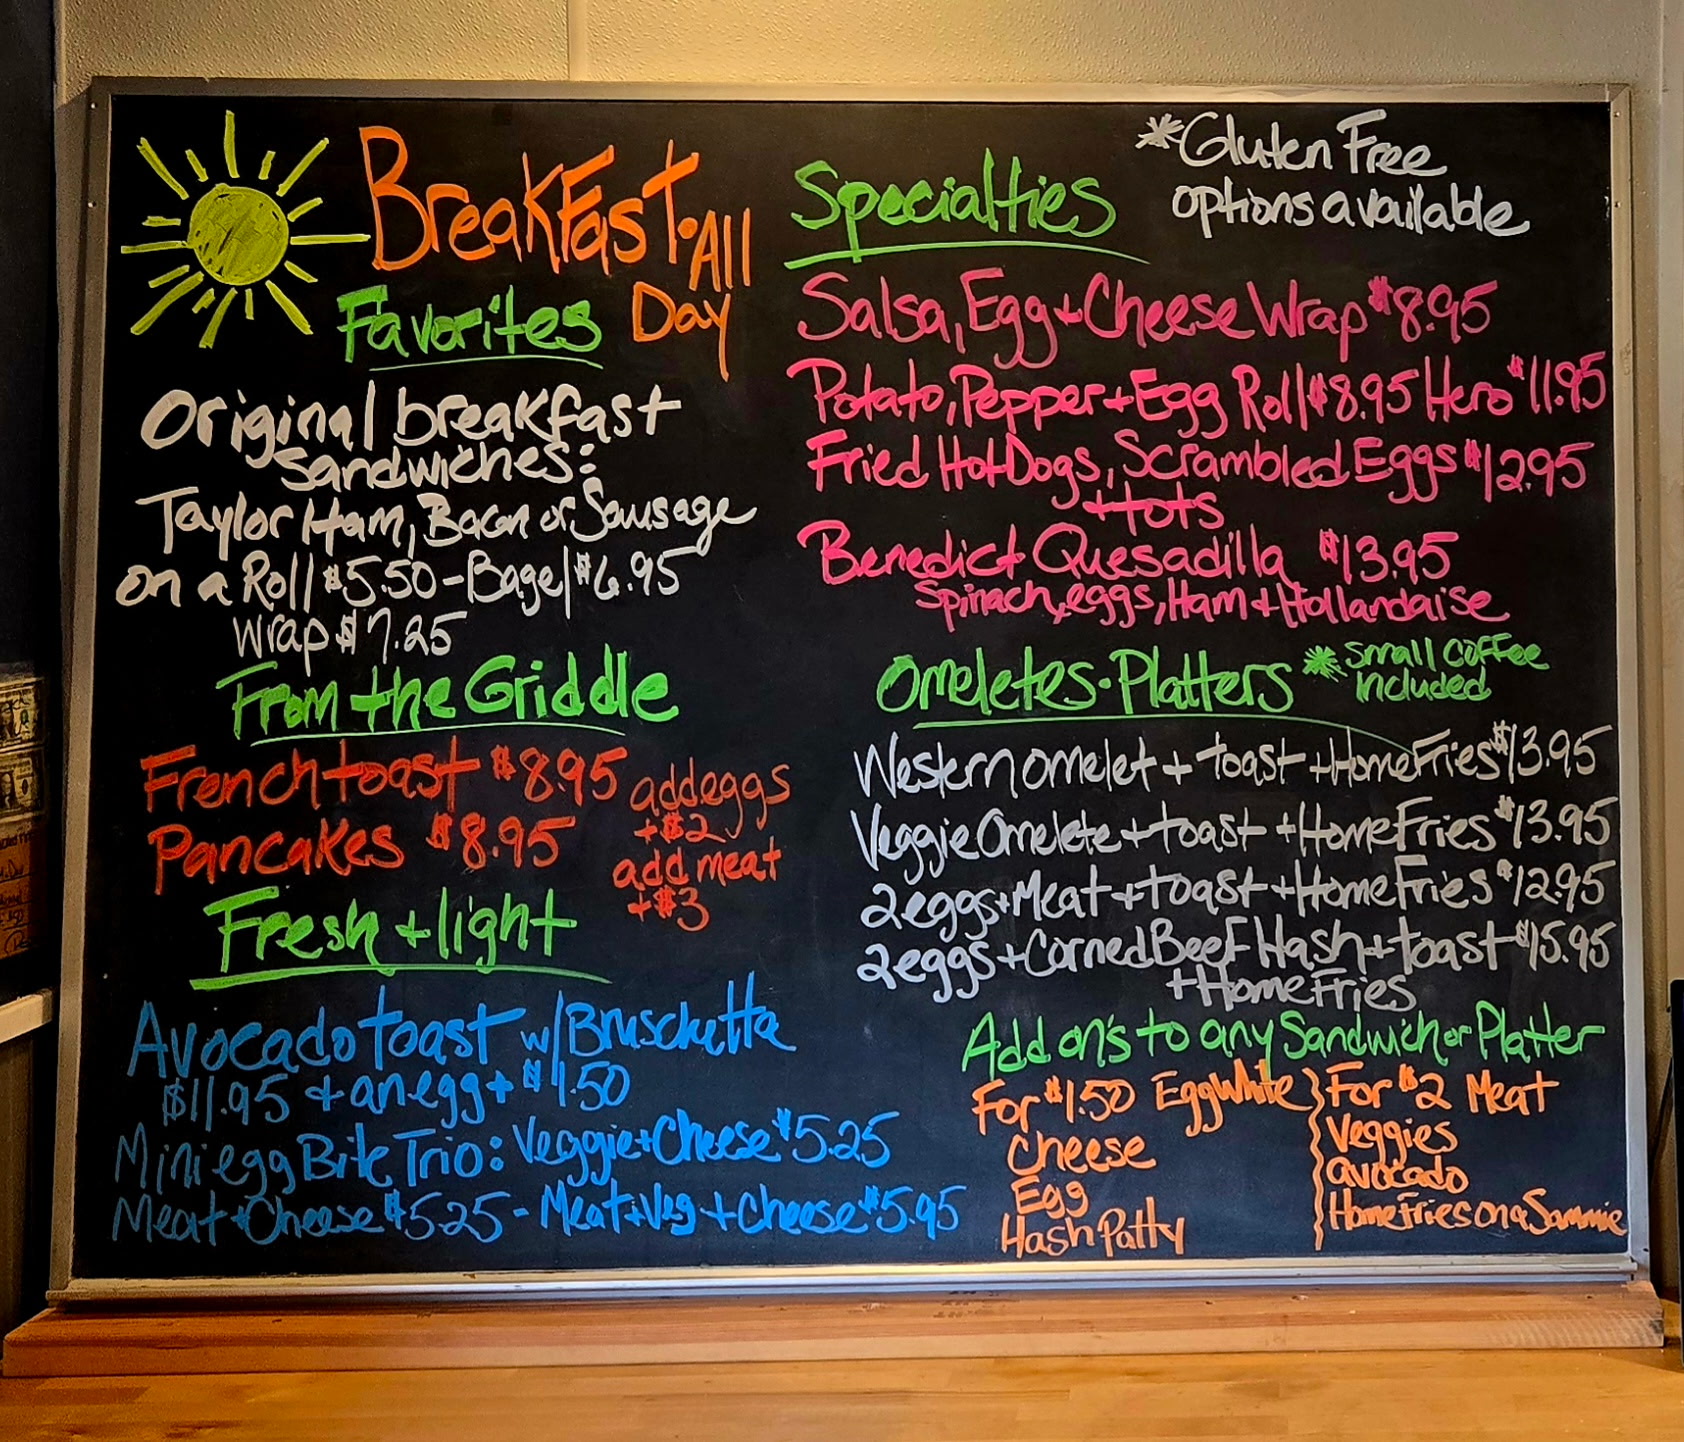 Breakfast • All
Day
Favorites
Original breakfast
Sandwiches:
Taylor Ham, Bacon or Sausage
on a Roll $5.50 - Bagel $6.95
Wrap $7.25
From the Griddle
French toast $8.95
Pancakes $8.95
add eggs
+ $2
add meat
+ $3
Fresh + light
Avocado toast w/ Bruschetta
$11.95 + an egg + $1.50
Mini egg Bite Trio: Veggie + Cheese $5.25
Meat + Cheese $5.25 - Meat + Veg + Cheese $5.95
*Gluten Free
options available
Specialties
Salsa, Egg + Cheese Wrap $8.95
Potato, Pepper + Egg Roll $8.95 Hero $11.95
Fried Hot Dogs, Scrambled Eggs $12.95
+ tots
Benedict Quesadilla $13.95
Spinach, eggs, Ham + Hollandaise
Omeletes • Platters * Small coffee
included
Western omelet + toast + Home Fries $13.95
Veggie Omelete + toast + Home Fries $13.95
2 eggs + Meat + toast + Home Fries $12.95
2 eggs + Corned Beef Hash + toast $15.95
+ Home Fries
Add on's to any Sandwich or Platter
For $1.50 Egg White
Cheese
Egg
Hash Patty
For $2 Meat
Veggies
avocado
Home Fries on a Sammie